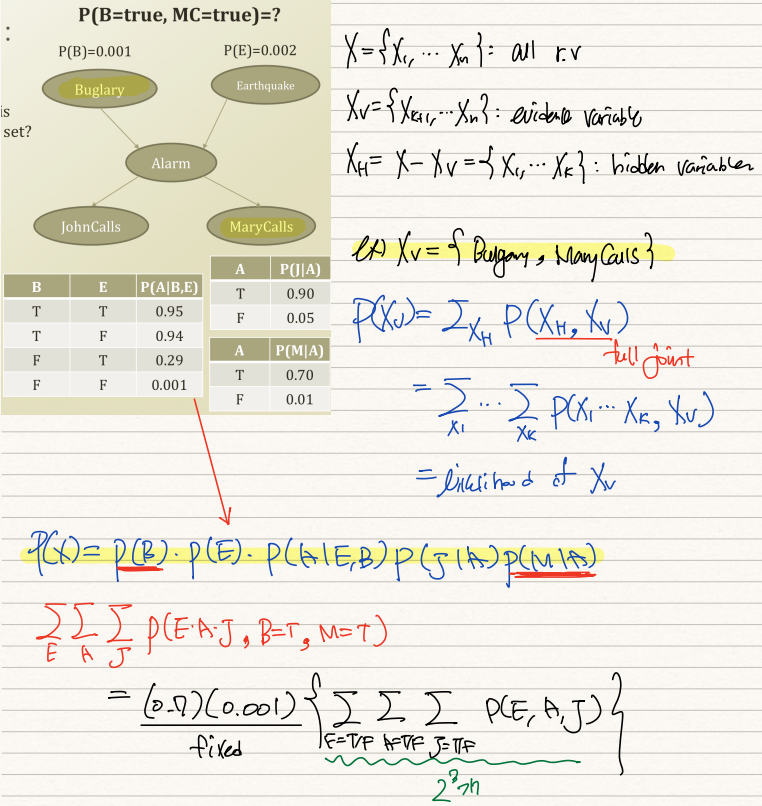 P(B=true, MC=true)=?
:
P(B)=0.001
P(E)=0.002
Buglary
Earthquake
is
set?
Alarm
JohnCalls
MaryCalls
B E P(A|B,E)
T T 0.95
T F 0.94
F T 0.29
F F 0.001
A P(J|A)
T 0.90
F 0.05
A P(M|A)
T 0.70
F 0.01
X = {X₁, ⋯ Xₙ} : all r.v
X_V = {X_{K+1}, ⋯ Xₙ} : evidence variable
X_H = X - X_V = {X₁, ⋯ X_K} : hidden variables
ex) X_V = { Buglary, MaryCalls }
P(X_V) = Σ_{X_H} P(X_H, X_V)
full joint
= Σ_{X₁} ⋯ Σ_{X_K} P(X₁ ⋯ X_K, X_V)
= likelihood of X_V
P(X) = P(B) · P(E) · P(A|E,B) P(J|A) P(M|A)
Σ_E Σ_A Σ_J P(E·A·J, B=T, M=T)
= (0.7)(0.001) { Σ_{E=T/F} Σ_{A=T/F} Σ_{J=T/F} P(E, A, J) }
fixed
2³